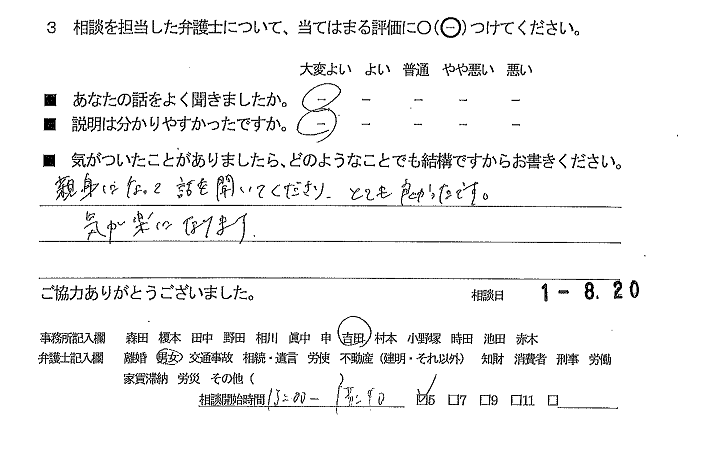 3 相談を担当した弁護士について、当てはまる評価に○(⊖)つけてください。
大変よい よい 普通 やや悪い 悪い
■ あなたの話をよく聞きましたか。 － － － － －
■ 説明は分かりやすかったですか。 － － － － －
■ 気がついたことがありましたら、どのようなことでも結構ですからお書きください。
親身になって話を聞いてくださり、とても良かったです。
気が楽になります。
ご協力ありがとうございました。 相談日 1-8.20
事務所記入欄 森田 榎本 田中 野田 相川 眞中 申 吉田 村本 小野塚 時田 池田 赤木
弁護士記入欄 離婚 男女 交通事故 相続・遺言 労使 不動産（建明・それ以外） 知財 消費者 刑事 労働
家賃滞納 労災 その他（ ）
相談開始時間 13:00－ ☑5 □7 □9 □11 □